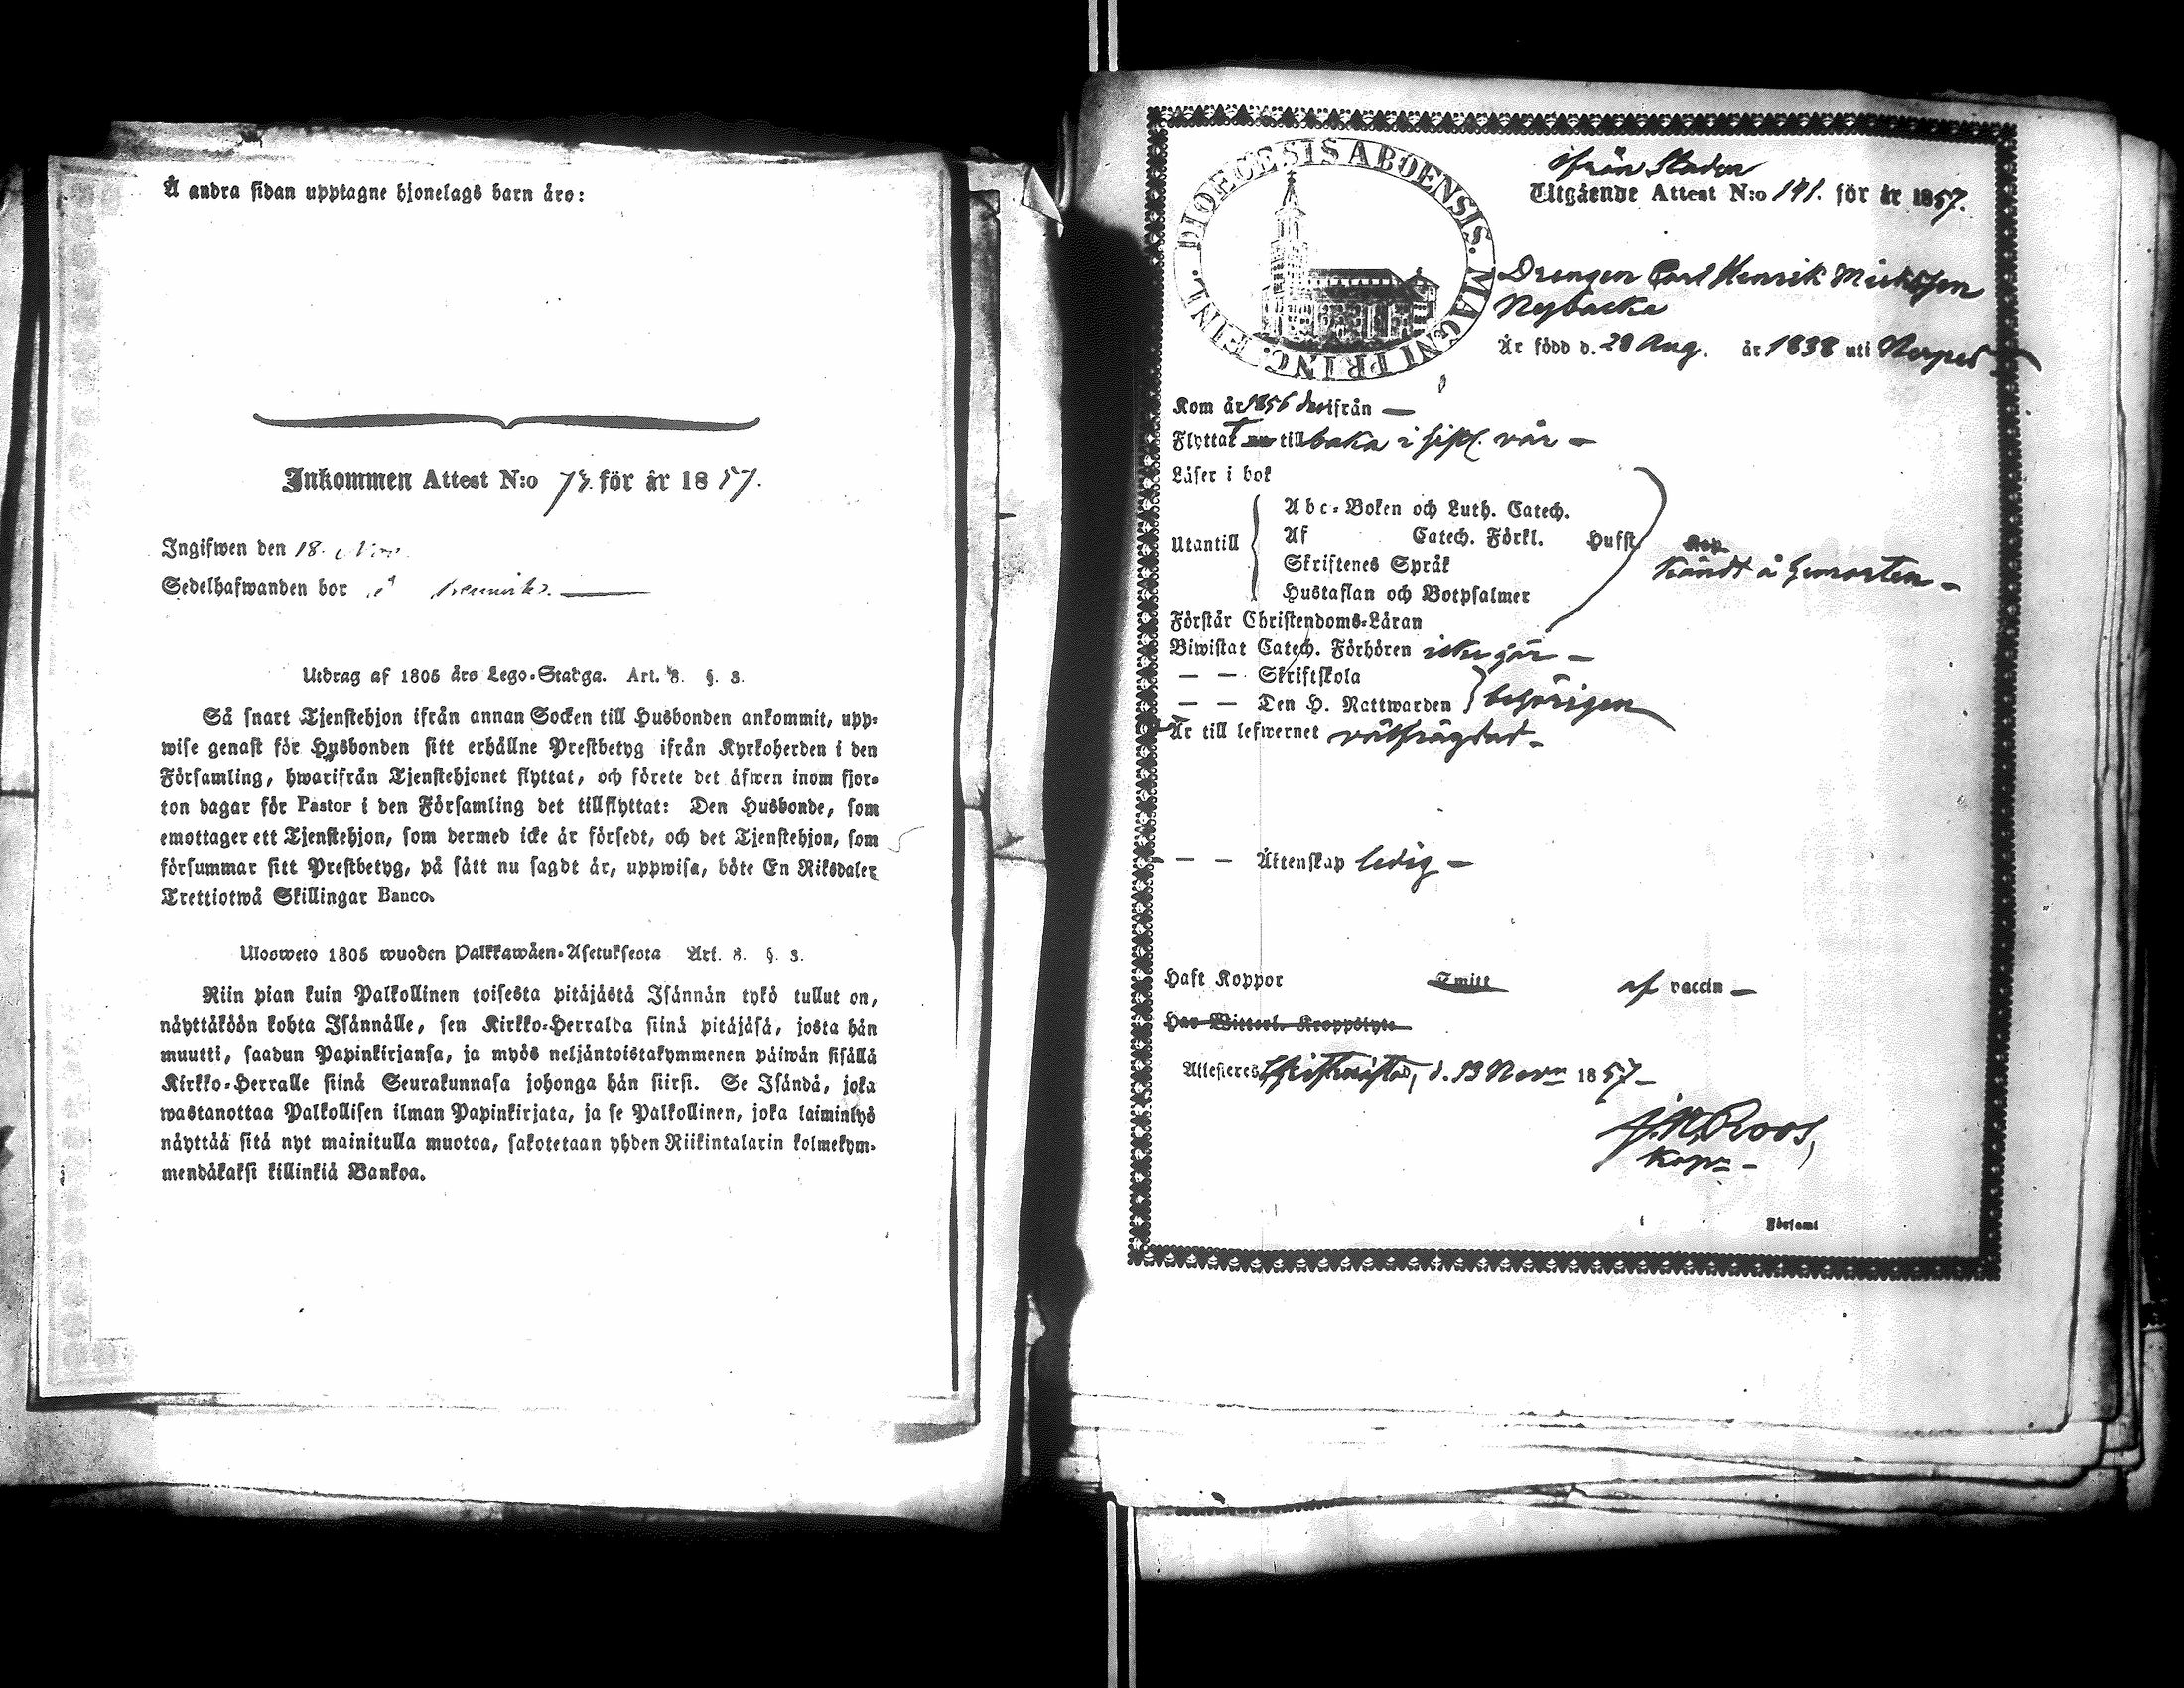 Å andra sidan upptagne hjonelags barn äro:
Inkommen Attest N:o 73. för år 1857.
Ingifwen den 18. Nov.
Sedelhafwanden bor
Utdrag af 1805 års Lego-Stadga. Art. 8. §. 3.
Så snart Tjenstehjon ifrån annan Socken till Husbonden ankommit, upp-
wise genast för Husbonden sitt erhållne Prestbetyg ifrån Kyrkoherden i den
Församling, hwarifrån Tjenstehjonet flyttat, och förete det äfwen inom fjor-
ton dagar för Pastor i den Församling det tillflyttat: Den Husbonde, som
emottager ett Tjenstehjon, som dermed icke är försedt, och det Tjenstehjon, som
försummar sitt Prestbetyg, på sätt nu sagdt är, uppwisa, böte En Riksdaler
Trettiotwå Skillingar Banco.
Ulosweto 1805 wuoden Palkkawäen-Asetuksesta Art. 8. §. 3.
Niin pian kuin Palkollinen toisesta pitäjästä Isännän tykö tullut on,
näyttäköön kohta Isännälle, sen Kirkko-Herralda siinä pitäjäsä, josta hän
muutti, saadun Papinkirjansa, ja myös neljäntoistakymmenen päiwän sisällä
Kirkko-Herralle siinä Seurakunnasa johonga hän siirsi. Se Isändä, joka
wastanottaa Palkollisen ilman Papinkirjata, ja se Palkollinen, joka laiminlyö
näyttää sitä nyt mainitulla muotoa, sakotetaan yhden Riikintalarin kolmekym-
mendäkaksi killinkiä Bankoa.
DIOECESIS ABOENSIS. MAGNI PRINC. FINL.
ifrån Staden
Utgående Attest N:o 141. för år 1857.
Drengen Carl Henrik Mickelsson
Nybacka
Är född d. 28 Aug. år 1838 uti Nerpes
Kom år 1856 derifrån —
Flyttat tillbaka i sistl. vår —
Läser i bok
Utantill
Abc-Boken och Luth. Catech.
Af Catech. Förkl. Husst.
Skriftenes Språk
Hustaflan och Botpsalmer
kändt å hemorten —
Förstår Christendoms-Läran
Biwistat Catech. Förhören icke här —
— — Skriftskola
— — Den H. Nattwarden behörigen
Är till lefwernet välfrägdad —
— — Äktenskap ledig —
Haft Koppor Smitt af vaccin —
Har Witterl. Kroppslyte
Attesteres Christinestad, d. 13 Novr 1857 —
J. N. Roos,
Kapn —
Församl